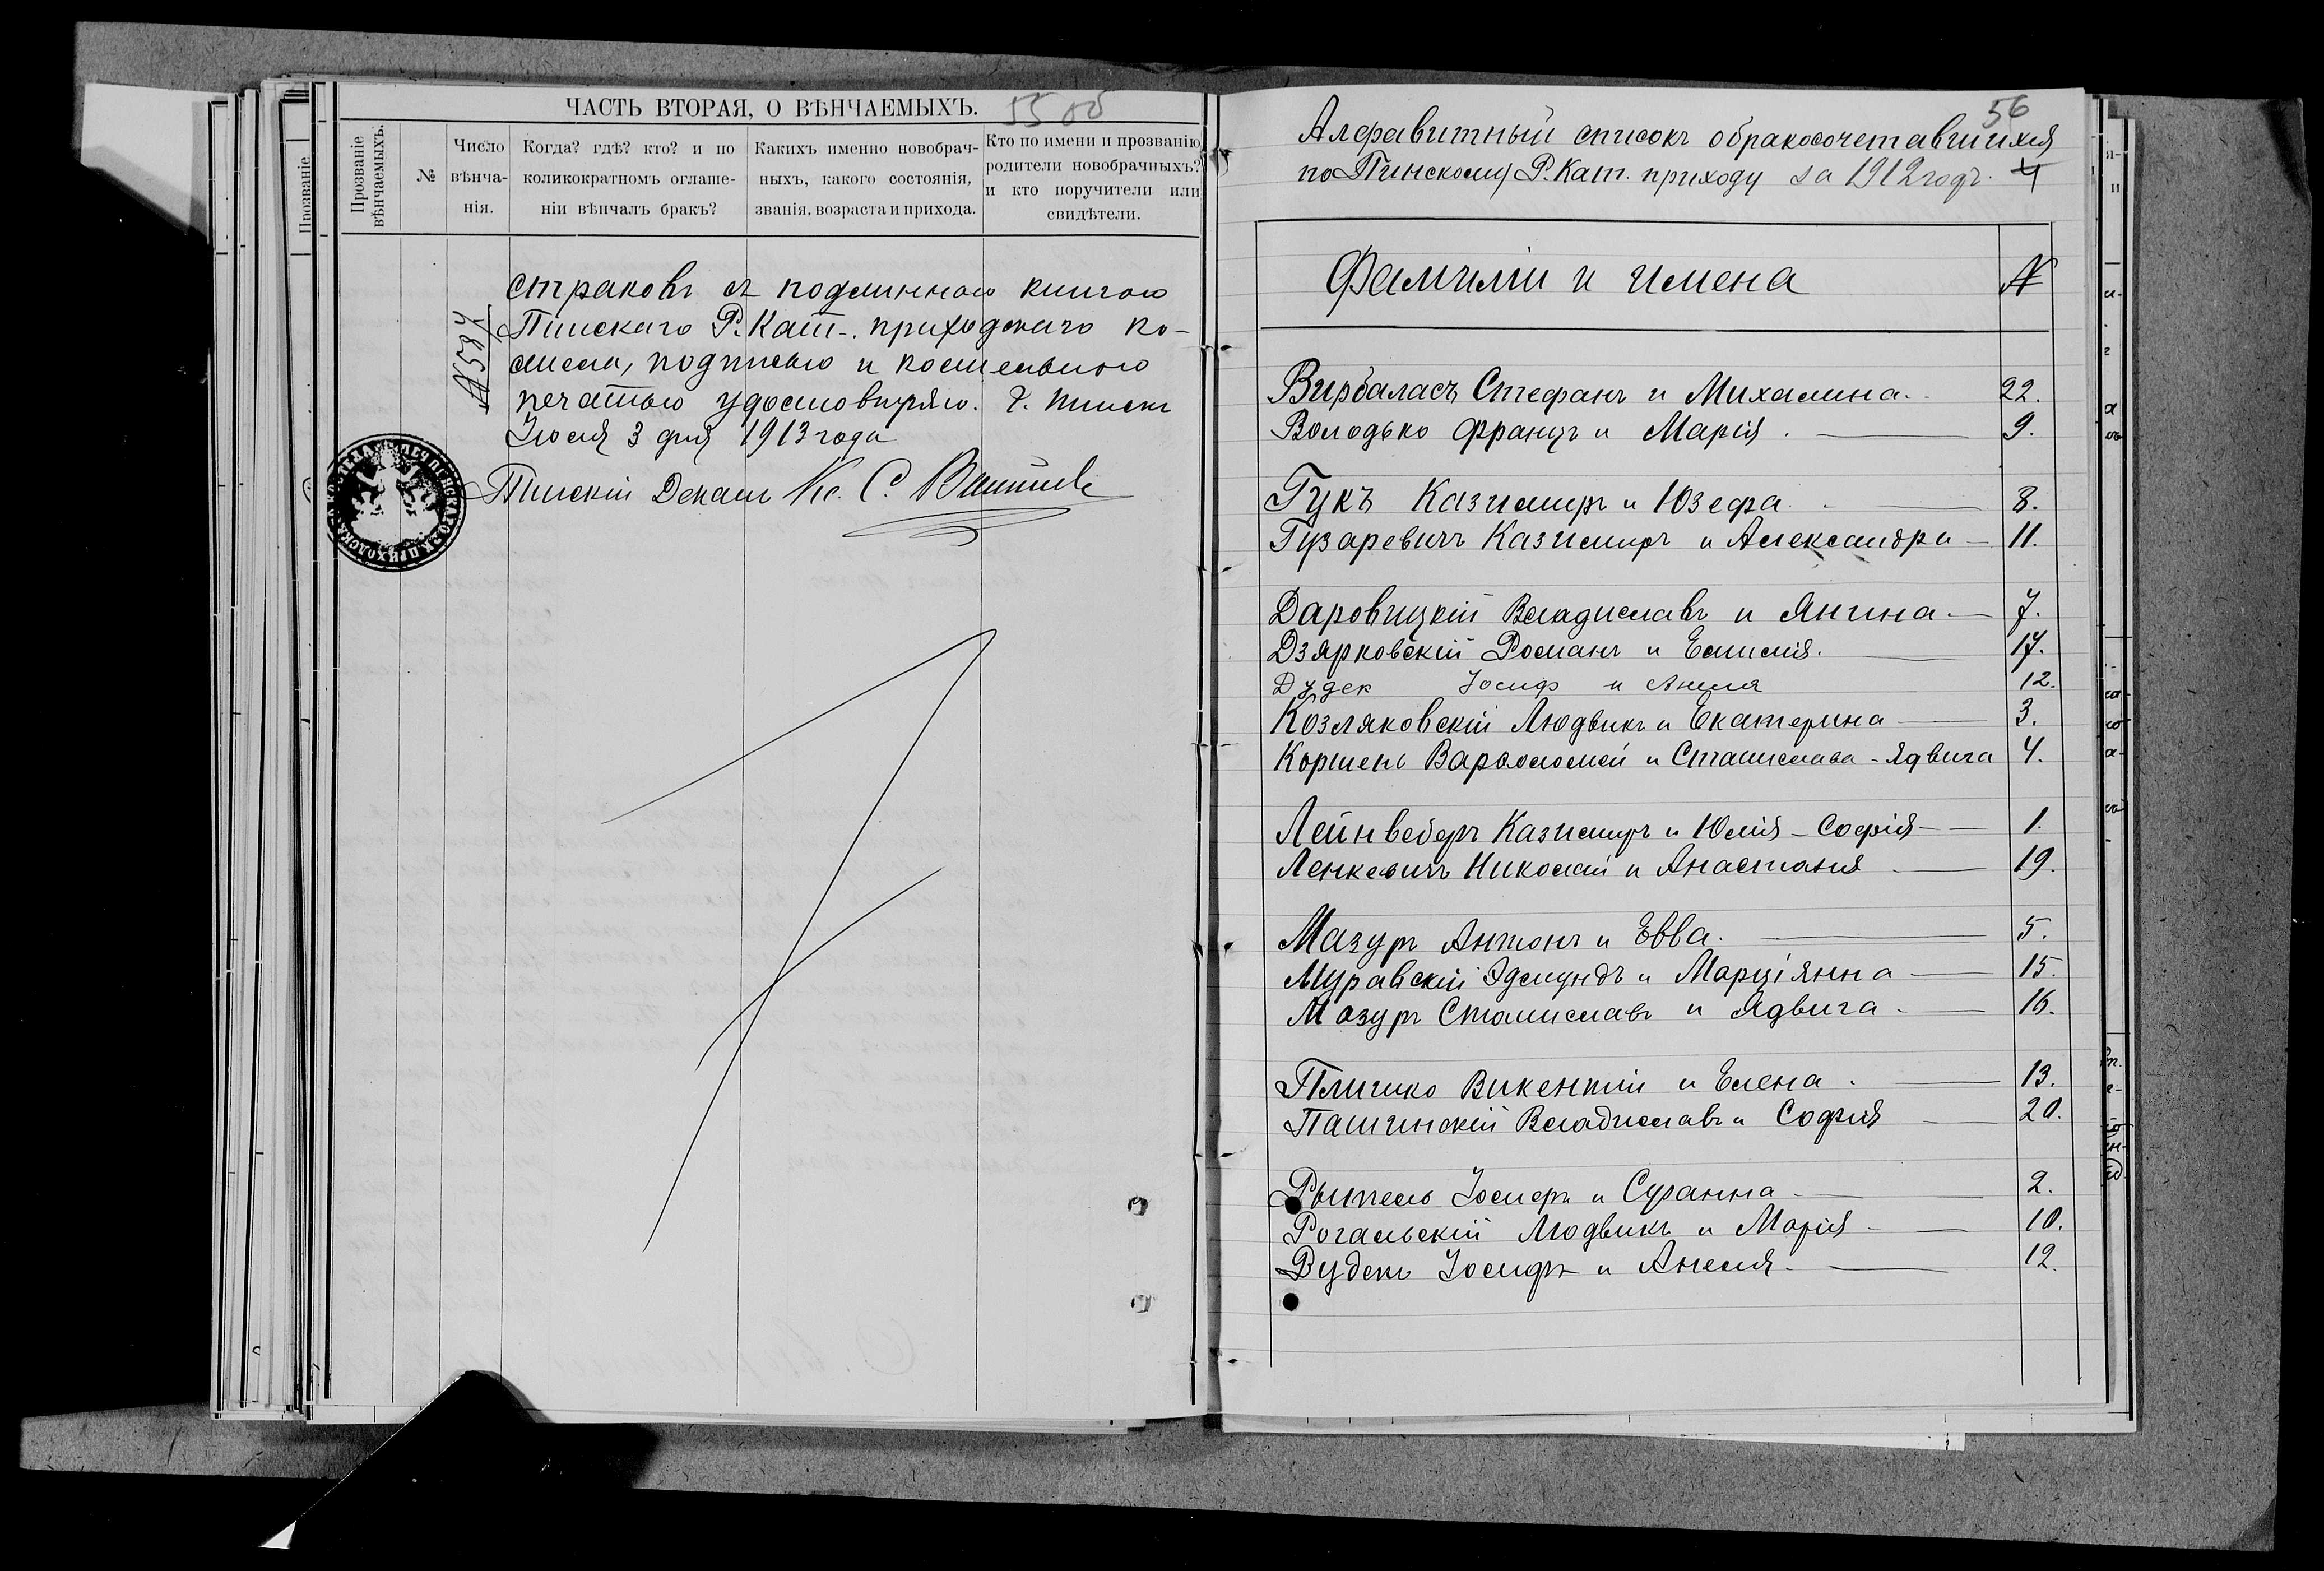 ЧАСТЬ ВТОРАЯ, О ВѢНЧАЕМЫХЪ. 55 об
Прозваніе вѣнчаемыхъ.
№
Число вѣнча-нія.
Когда? гдѣ? кто? и по коликократномъ оглаше-ніи вѣнчалъ бракъ?
Какихъ именно новобрач-ныхъ, какого состоянія, званія, возраста и прихода.
Кто по имени и прозванію родители новобрачныхъ? и кто поручители или свидѣтели.
Прозваніе
страковъ съ подлинною книгою
Пинскаго Р. Кат. приходскаго ко-
стела, подписью и костельною
печатью удостовѣряю. Г. Пинскъ
Іюля 3 дня 1913 года
№ 584
Пинскій Деканъ Кс. С.
56
Алфавитный списокъ бракосочетавшихся
по Пинскому Р. Кат. приходу за 1912 годъ.
Фамиліи и имена №
Вирбаласъ Стефанъ и Михалина. 22.
Володько Францъ и Марія. — 9.
Гукъ Казимиръ и Юзефа. — 8.
Гузаревичъ Казимиръ и Александра — 11.
Даровицкій Владиславъ и Янина. — 7.
Дзярковскій Романъ и Емилія. — 17.
Дудек Іосиф и Анеля 12.
Козляковскій Людвикъ и Екатерина — 3.
Коршень Варфоломей и Станислава-Ядвига 4.
Лейнведеръ Казимиръ и Юлія-Софія — 1.
Ленкевичъ Николай и Анастазія. — 19.
Мазуръ Антонъ и Евва. — 5.
Муравскій Эдмундъ и Марціянна — 15.
Мазуръ Станиславъ и Ядвига. — 16.
Пличко Викентій и Елена. — 13.
Пашинскій Владиславъ и Софія — 20.
Рытель Іосифъ и Сузанна — 2.
Рогальскій Людвикъ и Марія — 10.
Рудекъ Іосифъ и Анеля. — 12.